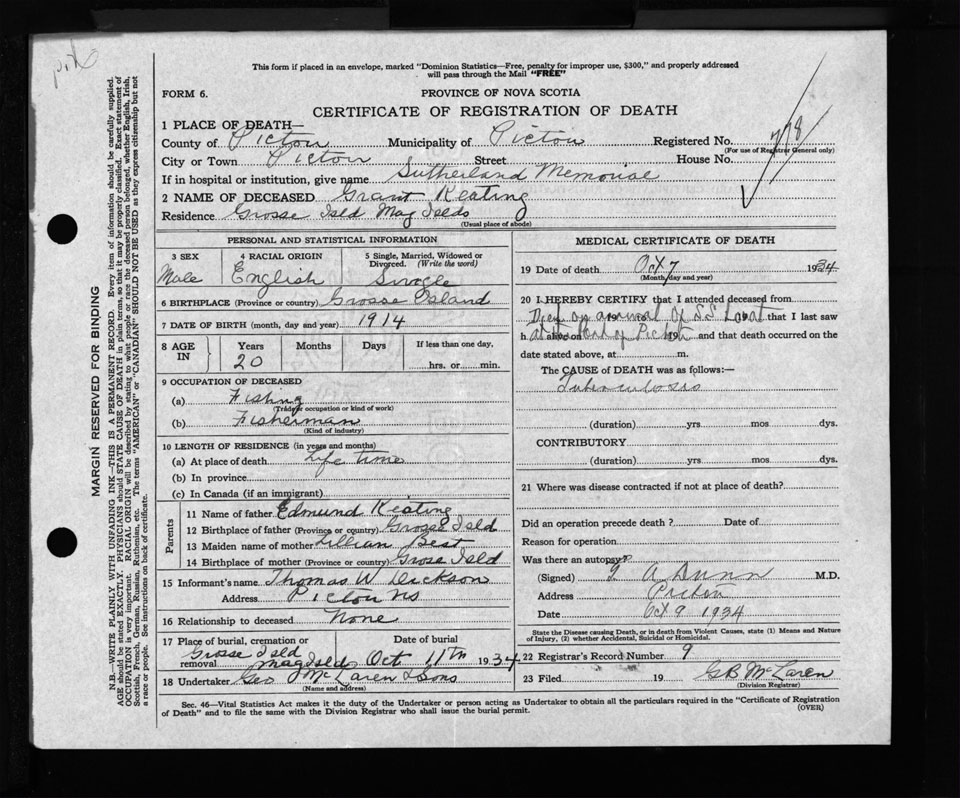 This form if placed in an envelope, marked "Dominion Statistics—Free, penalty for improper use, $300," and properly addressed
will pass through the Mail "FREE"
FORM 6.
PROVINCE OF NOVA SCOTIA
CERTIFICATE OF REGISTRATION OF DEATH
1 PLACE OF DEATH—
County of Pictou Municipality of Pictou Registered No. 778
(For use of Registrar General only)
City or Town Pictou Street House No.
If in hospital or institution, give name Sutherland Memorial
2 NAME OF DECEASED Grant Keating
Residence Grosse Isld Mag Islds
(Usual place of abode)
PERSONAL AND STATISTICAL INFORMATION
3 SEX 4 RACIAL ORIGIN 5 Single, Married, Widowed or
Divorced. (Write the word)
Male English Single
6 BIRTHPLACE (Province or country) Grosse Island
7 DATE OF BIRTH (month, day and year) 1914
8 AGE IN Years Months Days If less than one day,
20 hrs. or min.
9 OCCUPATION OF DECEASED
(a) Fishing
(Trade or occupation or kind of work)
(b) Fisherman
(Kind of industry)
10 LENGTH OF RESIDENCE (in years and months)
(a) At place of death Life time
(b) In province
(c) In Canada (if an immigrant)
Parents
11 Name of father Edmund Keating
12 Birthplace of father (Province or country) Grosse Isld
13 Maiden name of mother Lillian Best
14 Birthplace of mother (Province or country) Grose Isld
15 Informant's name Thomas W Dickson
Address Pictou NS
16 Relationship to deceased None
17 Place of burial, cremation or Date of burial
Grosse Isld
removal Mag Islds Oct 11th 1934
18 Undertaker Geo J McLaren & Sons
(Name and address)
MEDICAL CERTIFICATE OF DEATH
19 Date of death Oct 7 1934
(Month, day and year)
20 I HEREBY CERTIFY that I attended deceased from
on arrival of S S Lovat that I last saw
h alive on 19 and that death occurred on the
date stated above, at m.
The CAUSE of DEATH was as follows:—
Tuberculosis
(duration) yrs mos dys.
CONTRIBUTORY
(duration) yrs. mos dys.
21 Where was disease contracted if not at place of death?
Did an operation precede death ? Date of
Reason for operation
Was there an autopsy?
(Signed) A Dunn M.D.
Address Pictou
Date Oct 9 1934
State the Disease causing Death, or in death from Violent Causes, state (1) Means and Nature
of Injury, (2) whether Accidental, Suicidal or Homicidal.
22 Registrar's Record Number 9
23 Filed 19 GB McLaren
(Division Registrar)
Sec. 46—Vital Statistics Act makes it the duty of the Undertaker or person acting as Undertaker to obtain all the particulars required in the "Certificate of Registration
of Death" and to file the same with the Division Registrar who shall issue the burial permit.
(OVER)
MARGIN RESERVED FOR BINDING
N.B.—WRITE PLAINLY WITH UNFADING INK—THIS IS A PERMANENT RECORD. Every item of information should be carefully supplied.
AGE should be stated EXACTLY. PHYSICIANS should STATE CAUSE OF DEATH in plain terms, so that it may be properly classified. Exact statement of
OCCUPATION is very important. RACIAL ORIGIN will be described by stating to what people or race the deceased person belonged, whether English, Irish,
Scottish, French, German, Russian, Ruthenian, etc. The terms "AMERICAN" or "CANADIAN" SHOULD NOT BE USED as they express citizenship but not
a race or people. See instructions on back of certificate.